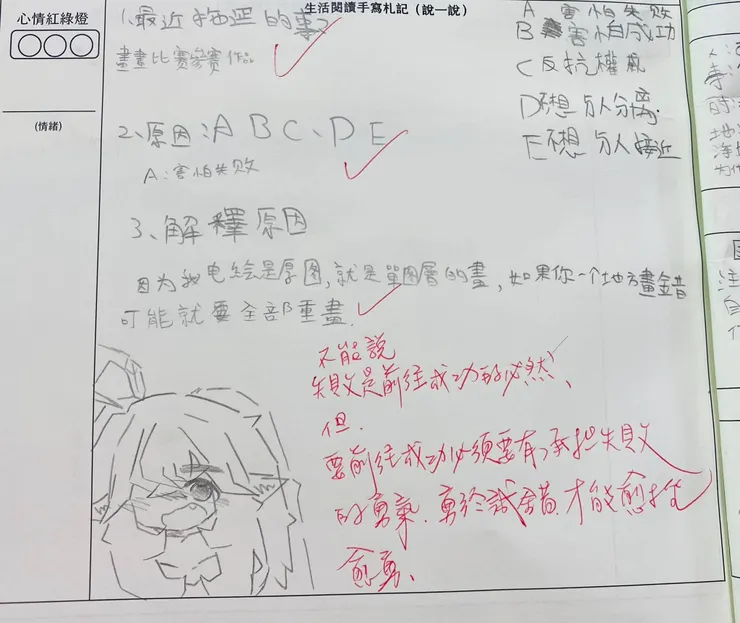 心情紅綠燈
(情緒)
生活閱讀手寫札記（說一說）
1.最近拖延的事
畫畫比賽參賽作品
2、原因：A B C、D E
A:害怕失败
A 害怕失敗
B 害怕成功
C 反抗權威
D 不想与人分离.
E 不想 与人接近
3、解釋原因
因为我电绘是厚图,就是單图層的畫,如果你一个地方畫錯
可能就要全部重畫.
不能說
失敗是前往成功的必然、
但.
要前往成功必須要有承担失敗
的勇氣.勇於試錯.才能愈挫
愈勇.